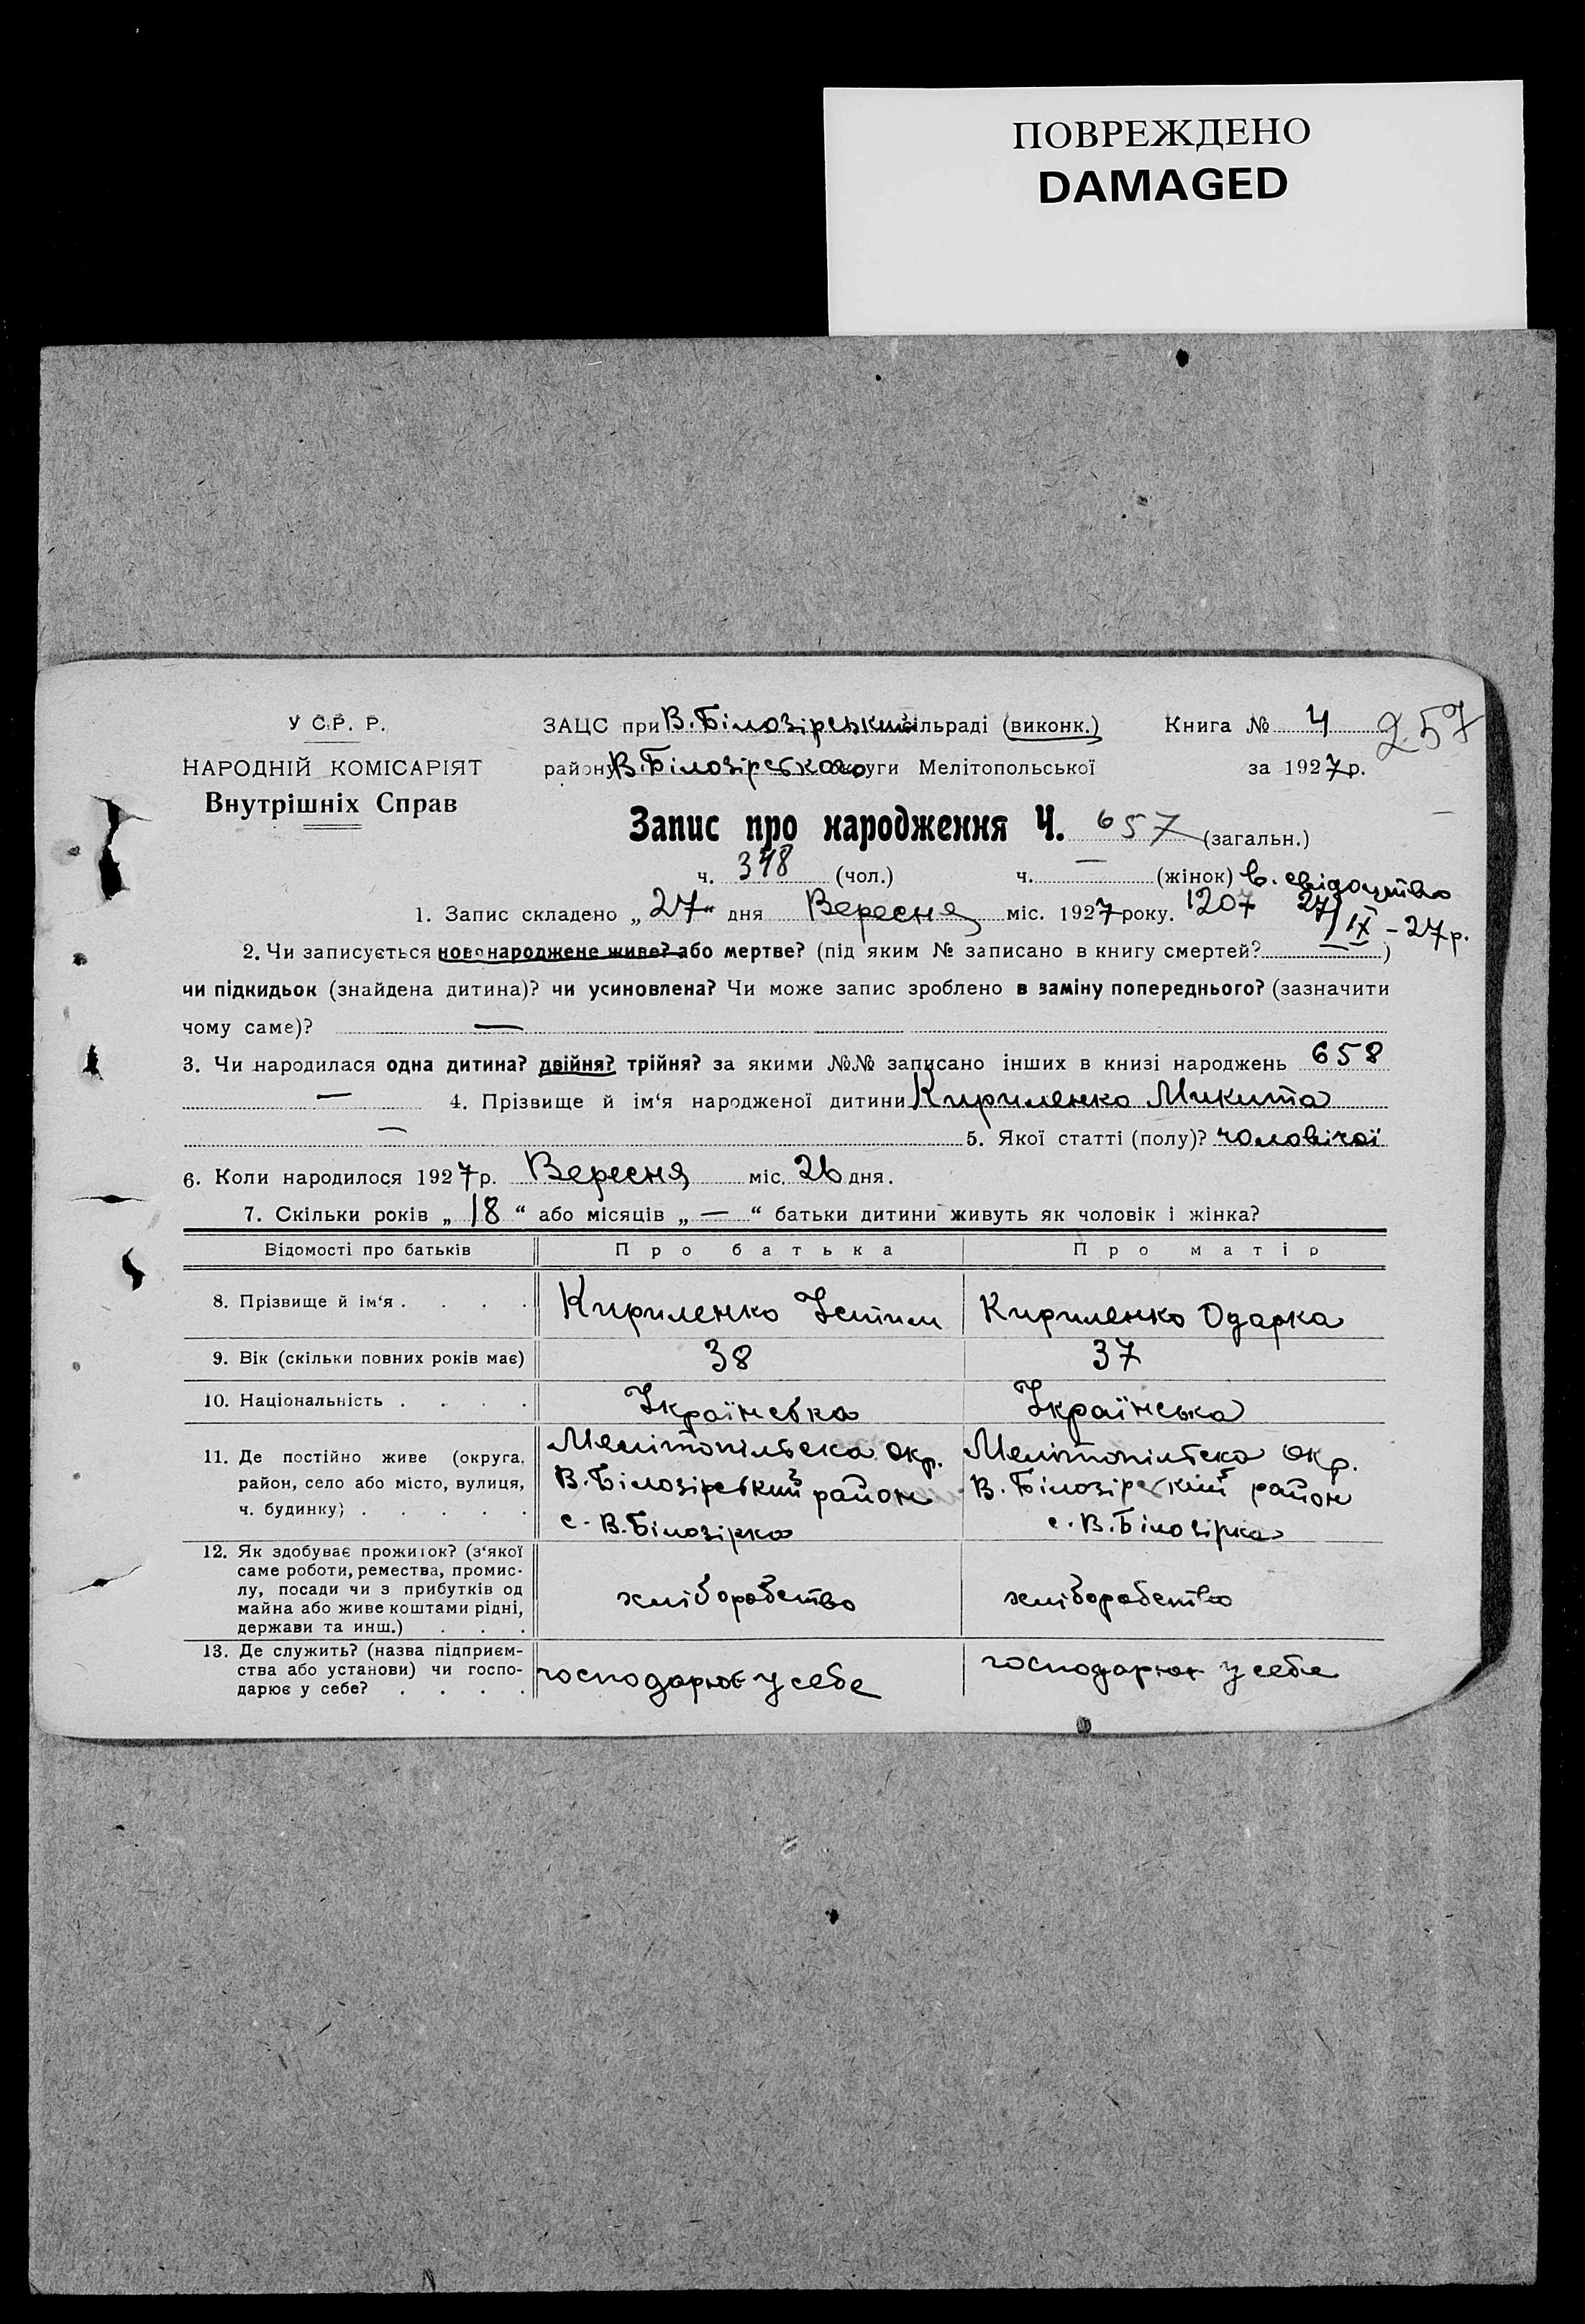 ПОВРЕЖДЕНО
DAMAGED
У С.Р. Р.
НАРОДНІЙ КОМІСАРІЯТ
Внутрішніх Справ
ЗАЦС при В.Білозірський сільраді (виконк.)
Книга № 4
257
району В.Білозірського округи Мелітопольської
за 1927 р.
Запис про народження Ч. 657 (загальн.)
ч. 348 (чол.) ч. — (жінок) в. свідоцтво
1. Запис складено „27“ дня Вересня міс. 1927 року. 1207 27/IX – 27 р.
2. Чи записується новонароджене живе? або мертве? (під яким № записано в книгу смертей? — )
чи підкидьок (знайдена дитина)? чи усиновлена? Чи може запис зроблено в заміну попереднього? (зазначити
чому саме)? —
3. Чи народилася одна дитина? двійня? трійня? за якими №№ записано інших в книзі народжень 658
— 4. Прізвище й ім‘я народженої дитини Кириленко Микита
— 5. Якої статті (полу)? чоловічої
6. Коли народилося 1927 р. Вересня міс. 26 дня.
7. Скільки років „18“ або місяців „—“ батьки дитини живуть як чоловік і жінка?
Відомості про батьків
Про батька
Про матір
8. Прізвище й ім‘я . . . .
Кириленко Устим
Кириленко Одарка
9. Вік (скільки повних років має)
38
37
10. Національність . . . .
Українська
Українська
11. Де постійно живе (округа,
район, село або місто, вулиця,
ч. будинку) . . . . .
Мелітопільська окр.
В.Білозірський район
с. В.Білозірка
Мелітопільска окр.
В.Білозірський район
с. В.Білозірка
12. Як здобуває прожиток? (з‘якої
саме роботи, ремества, промис-
лу, посади чи з прибутків од
майна або живе коштами рідні,
держави та инш.) . . .
хліборобство
хліборобство
13. Де служить? (назва підприєм-
ства або установи) чи госпо-
дарює у себе? . . . .
господарює у себе
господарює у себе